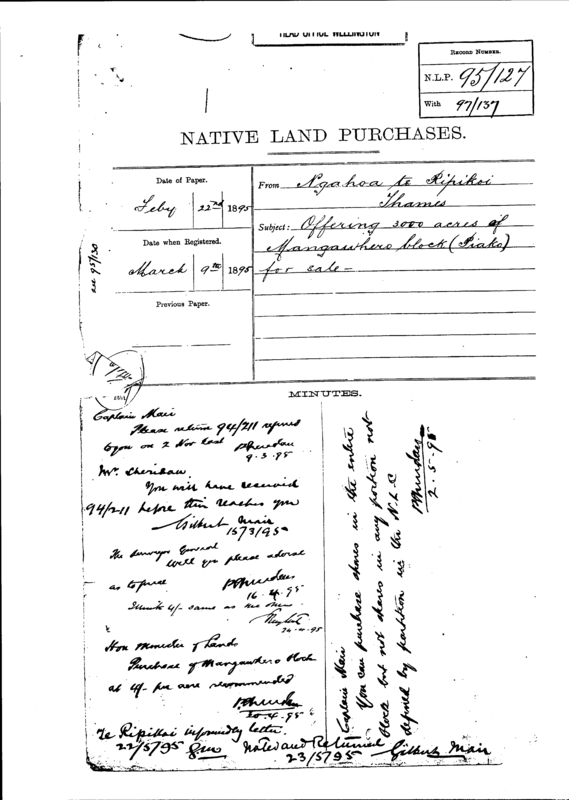 HEAD OFFICE WELLINGTON
RECORD NUMBER.
N.L.P. 95/127
With 97/137
NATIVE LAND PURCHASES.
Date of Paper.
Feby 22nd 1895
Date when Registered.
March 9th 1895
Previous Paper.
From Ngahoa te Ripikoi
Thames
Subject: Offering 3000 acres of
Mangawhero block (Piako)
for sale –
see 95/130
MINUTES.
Captain Mair
Please return 94/211 referred
to you on 2 Nov last P Sheridan
9.3.95
Mr. Sheridan,
You will have received
94/211 before this reaches you
Gilbert Mair
15/3/95
The Surveyor General
Will you please advise
as to price P Sheridan
16.4.95
I think 4/- same as
24.4.95
Hon Minister of Lands
Purchase of Mangawhero block
at 4/- per acre recommended
P Sheridan
.4.95
Te Ripikoi informed by letter.
22/5/95
Captain Mair
You can purchase shares in the entire
block but not shares in any portion not
defined by partition in the N.L.C
P Sheridan
2.5.95
Noted and Returned Gilbert Mair
23/5/95